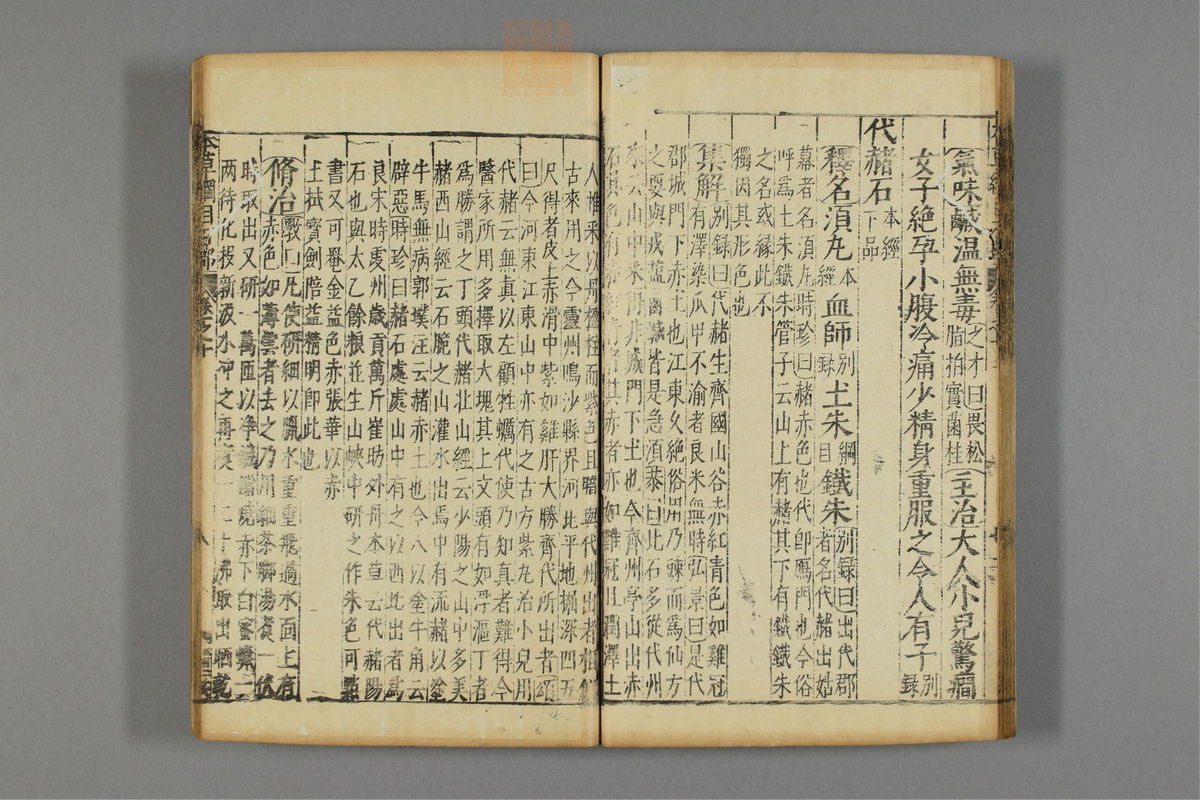 氣味鹹溫無毒之才曰畏松脂拍實菌桂主治大人小兒驚癇
女子絕孕小腹冷痛少精身重服之令人有子別錄
代赭石本經下品
釋名湏丸本經血師別錄土朱綱目鐵朱別録曰出代郡者名代赭出姑
幕者名湏丸時珍曰赭赤色也代即鴈門也今俗
呼爲土朱鐵朱管子云山上有赭其下有鐵鐵朱
之名或緣此不
獨因其形色也
集解別録曰代赭生齊國山谷赤紅青色如雞冠
有澤染瓜甲不渝者良米無時弘景曰是代
郡城門下赤土也江東久絕俗用乃踈而爲仙方
之要與戎鹽鹵鹹皆是急湏恭曰此石多從代州
來云山中采得非城門下土也今齊州亭山出赤
石其色有赤者其赤者亦如雞冠且潤澤土
人惟采以丹楹柱而紫色且暗與代州出者相似
古來用之今靈州鳴沙縣界河北平地掘深四五
尺得者皮上赤滑中紫如雞肝大勝齊代所出者頌
曰今河東江東山中亦有之古方紫丸治小兒用
代赭云無真以左顧牡蠣代使乃知真者難得今
醫家所用多擇取大塊其上文頭有如浮漚丁者
爲勝謂之丁頭代赭北山經云少陽之山中多美
赭西山經云石脆之山灌水出焉中有流赭以塗
牛馬無病郭璞注云赭赤土也今人以塗牛角云
辟惡時珍曰赭石處處山中有之以西北出者爲
良宋時虔州歳貢萬斤崔昉外丹本草云代赭陽
石也與太乙餘粮並生山峽中研之作朱色可㸃
書又可罨金益色赤張華以赤
土拭寶劍倍益精明即此也
脩治斆曰凡使研細以臘水重重飛過水面上有
赤色如薄雲者去之乃用細茶脚湯煑一伏
時取出又研一萬匝以净鐵鐺燒赤下白蜜蠟一
兩待化投新汲水冲之再煑一二十沸取出晒乾
本草綱目石部
卷之十